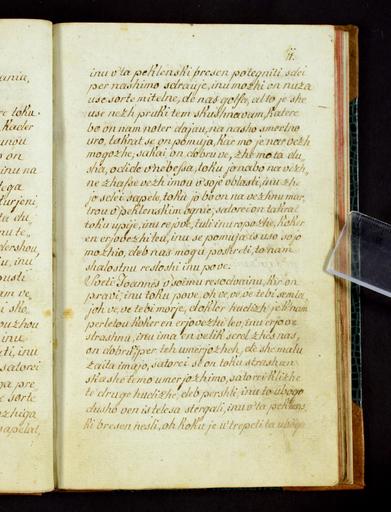 ania,
re toku
kader
unou
on
inu na
ega
turjeni,
ta du,
nu te
dershou,
u, inu
pusti
am ve,
i she,
puzhou
inu
ti, inu
satorei
ga pre,
e sorte
zhiga
sapelat,
11.
inu v'ta peklenski bresen potegniti, sdei
per nashimo sdrauje, inu mozhi on nuza
use sorte mitelne, de nas golfa, al to je she
use nezh pruki tem skushnavam, katere
bo on nam noter dajau, na nasho smertno
uro, takrat se on pomuja, kar mo je nar vezh
mogozhe, sakai, on dobru ve, zhe mo ta du,
sha, odide v'nebessa, toku jo nabo na vezh,
ne zhasse vezh imou v'sojo oblasti, inu zhe
jo sdei sapele, toku jo bo on na vezhnu mar,
trou v'peklenskim ognie, satorei on takrat
toku upije, inu rejove, tuli inu ropozhe, koker
en erjovezhi leu, inu se pomuja is uso sojo
mozhio, de b nas mogu poshreti, to nam
shalostnu resloshi inu pove.
Sveti Joannes v'soiemu resodvainu, kir on
pravi, inu toku pove, oh ve, ve, ve tebi semla,
joh ve, ve tebi morje, dokler hudizh je k'vam
perletou koker en erjovezhi leu, inu erjove
strashnu, inu ima en velik serd zhes nas,
on dobru per teh umerjozheh, de she malu
zaita imajo, satorei se on toku strashan
skashe temo umerjozhimo, satorei klizhe
te druge hudizhe, de b pershli, inu to ubogo
dusho ven is telesa stergali, inu v'ta peklens,
ki bresen nesli, oh koku je u'trepeti ta uboga